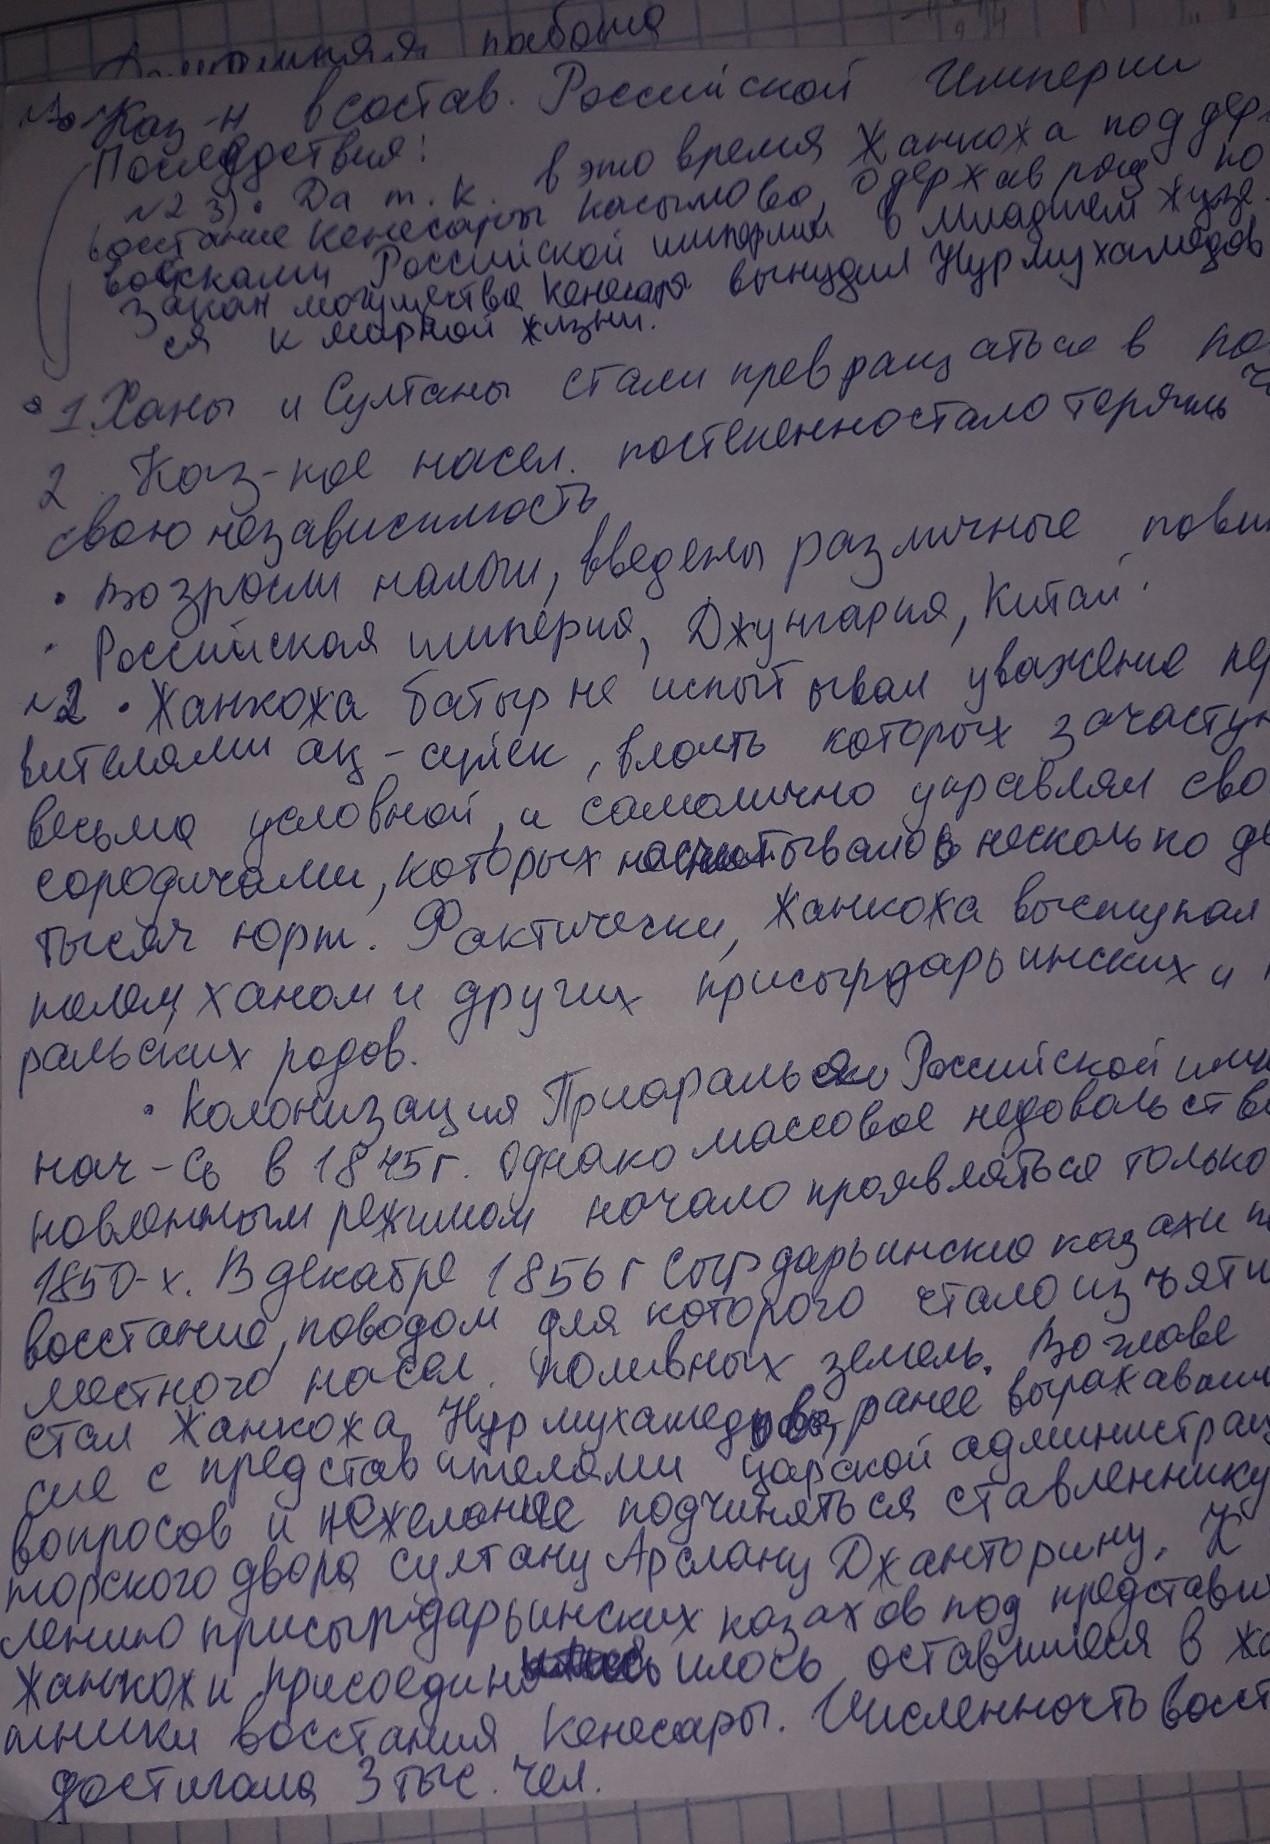 Домашняя работа
Каз-н в состав. Российской Империи
Последствия:
№2 3). Да т. к. в это время Жанкоха поддер
восстание Кенесары Касымова, одержав ряд по
войсками Российской империи в младшем жузе.
Закат могущества Кенесары вынудил Нурмухамедов
ся к мирной жизни.
1. Ханы и Султаны стали превращаться в по
2. Каз-кое насел. постепенно стало терять
свою независимость
• Возросли налоги, введены различные пови
• Российская империя, Джунгария, Китай.
№2 • Жанкоха батыр не испытывал уважение пе
вителями ақ-сүйек, власть которых зачасту
весьма условной, и самолично управлял сво
сородичами, которых насчитывалось несколько де
тысяч юрт. Фактически, Жанкоха выступал
полем, ханом и других присырдарьинских и
ральских родов.
• Колонизация Приаралья Российской имп
нач-сь в 1845г. Однако массовое недовольств
новленным режимом начало проявляться только
1850-х. В декабре 1856г Сырдарьинские казахи п
восстание, поводом для которого стало изъяти
местного насел. поливных земель. Во главе
стал Жанкоха Нурмухамедов, ранее выражавши
сие с представителями царской администрац
вопросов и нежелание подчиняться ставленнику
торского двора султану Арслану Джанторину. К
лению присырдарьинских казахов под представи
Жанкохи присоединилось оставшиеся в жи
тники восстания Кенесары. Численность восст
достигала 3 тыс. чел.